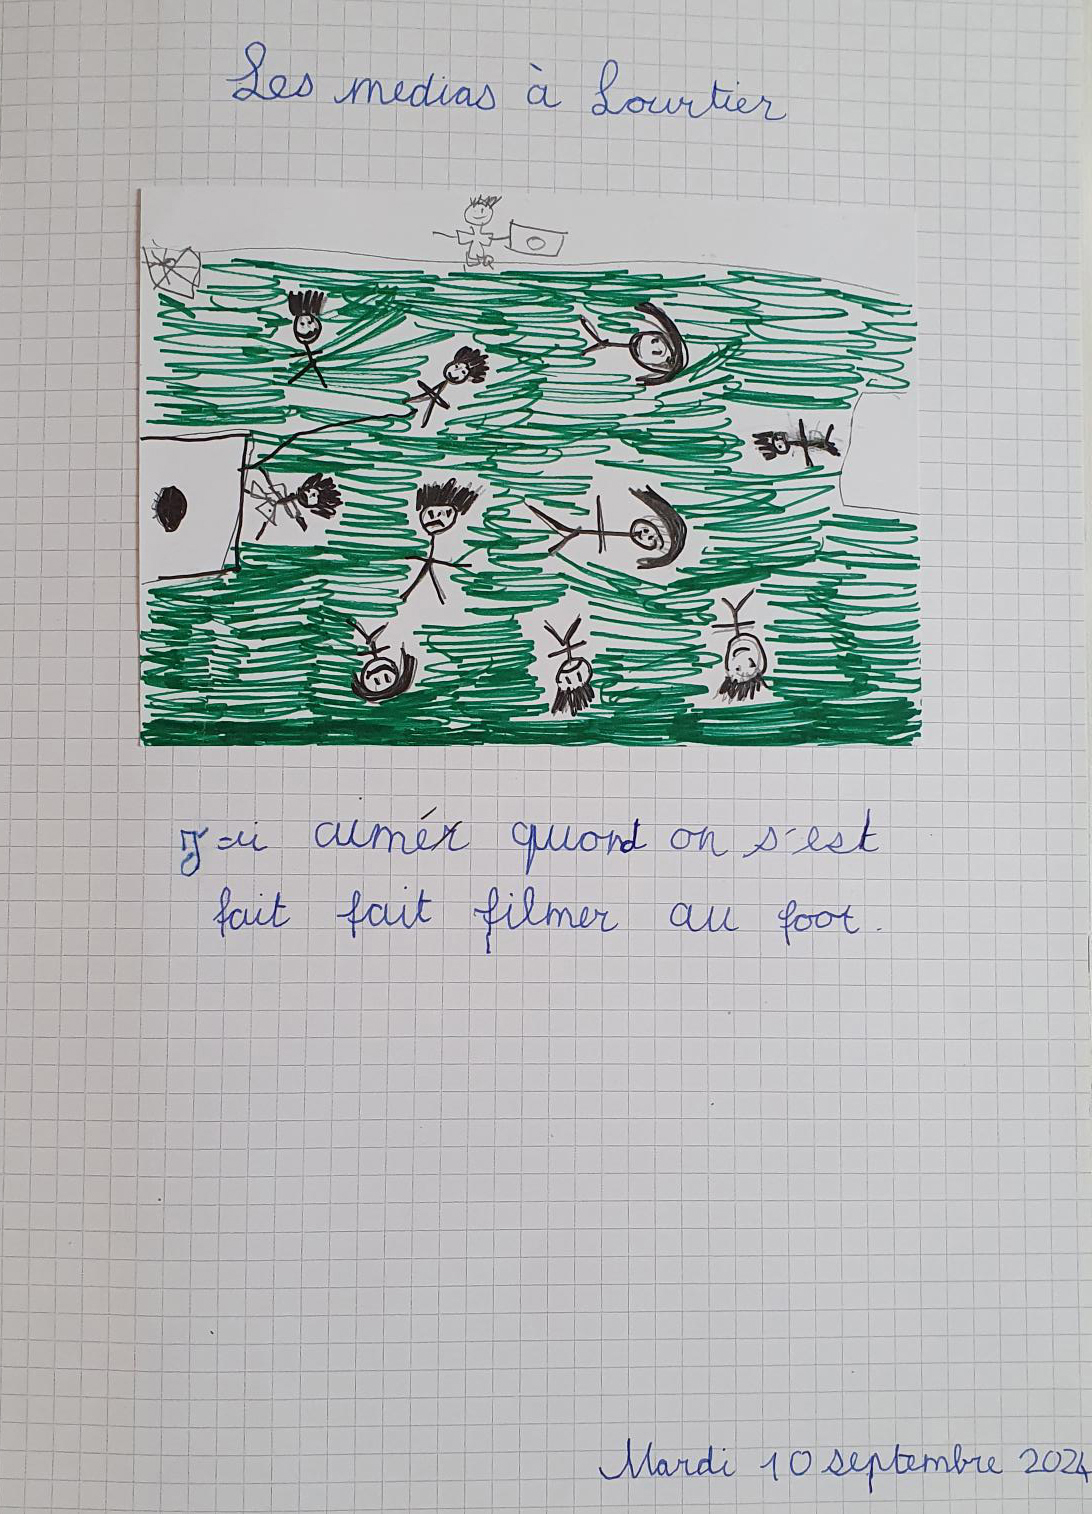 Les medias à Lourtier
J'ai aimér quand on s'est
fait fait filmer au foot.
Mardi 10 septembre 2024